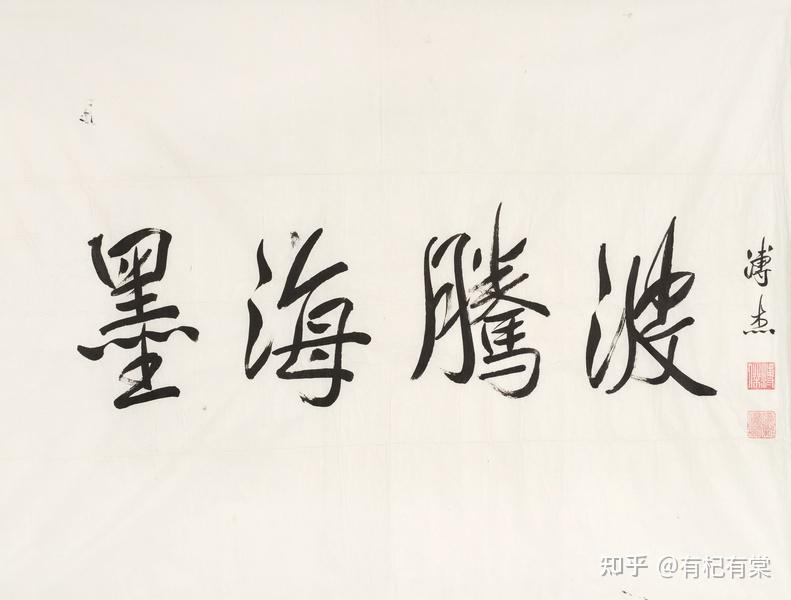 墨海騰波
溥杰
知乎 @有杞有棠